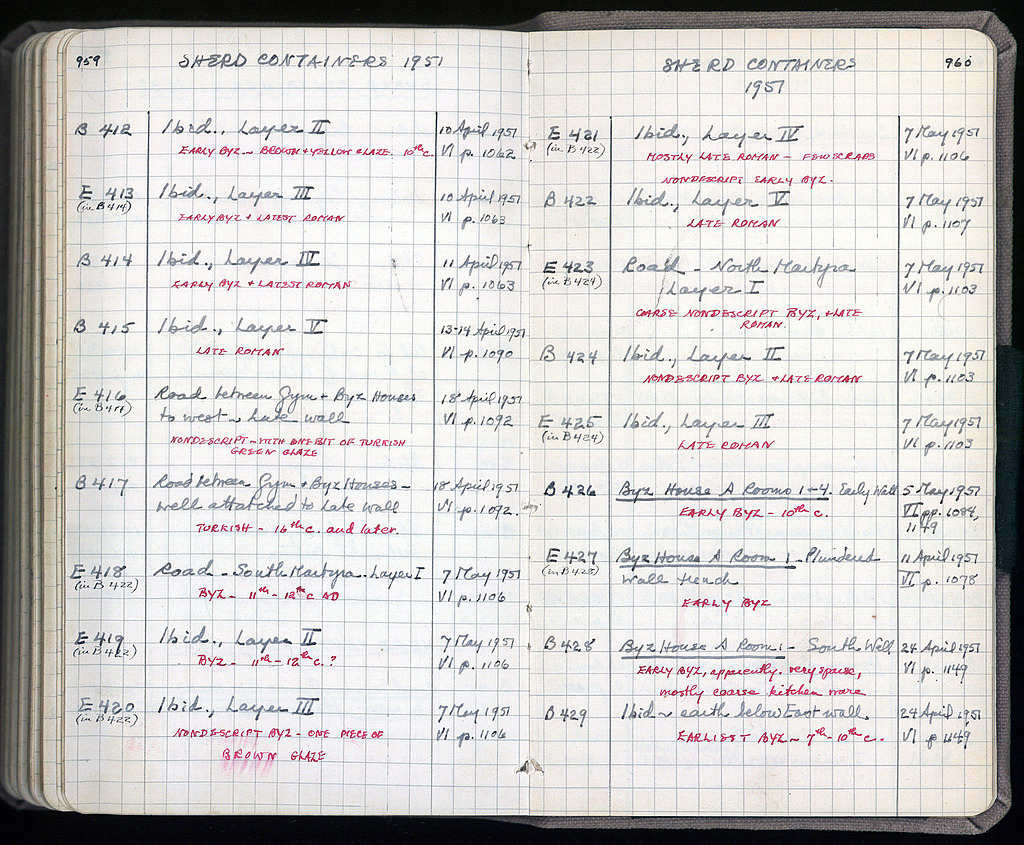 959
SHERD CONTAINERS 1951
B 412 Ibid., Layer II 10 April 1951
EARLY BYZ ~ BROWN + YELLOW GLAZE. 10th c. VI p. 1062
E 413 Ibid., Layer III 10 April 1951
(in B 414) EARLY BYZ + LATEST ROMAN VI p. 1063
B 414 Ibid., Layer IV 11 April 1951
EARLY BYZ + LATEST ROMAN VI p. 1063
B 415 Ibid., Layer V 13-14 April 1951
LATE ROMAN VI p. 1090
E 416 Road between Gym + Byz Houses 18 April 1951
(in B 417) to west ~ Late wall VI p. 1092
NONDESCRIPT ~ WITH ONE BIT OF TURKISH
GREEN GLAZE
B 417 Road between Gym + Byz Houses - 18 April 1951
well attatched to Late wall VI p. 1092.
TURKISH - 16th c. and later.
E 418 Road - South Martyra - Layer I 7 May 1951
(in B 422) BYZ - 11th - 12th c AD VI p. 1106
E 419 Ibid., Layer II 7 May 1951
(in B 422) BYZ - 11th - 12th c. ? VI p. 1106
E 420 Ibid., Layer III 7 May 1951
(in B 422) NONDESCRIPT BYZ - ONE PIECE OF VI p. 1106
BROWN GLAZE
960
SHERD CONTAINERS
1951
E 421 Ibid., Layer IV 7 May 1951
(in B 422) MOSTLY LATE ROMAN - FEW SCRAPS VI p. 1106
NONDESCRIPT EARLY BYZ.
B 422 Ibid., Layer V 7 May 1951
LATE ROMAN VI p. 1107
E 423 Road - North Martyra 7 May 1951
(in B 424) Layer I VI p. 1103
COARSE NONDESCRIPT BYZ, + LATE
ROMAN.
B 424 Ibid., Layer II 7 May 1951
NONDESCRIPT BYZ + LATE ROMAN VI p. 1103
E 425 Ibid., Layer III 7 May 1951
(in B 424) LATE ROMAN VI p. 1103
B 426 Byz House A Rooms 1-4. Early Well 5 May 1951
EARLY BYZ - 10th c. VI pp. 1084,
1149
E 427 Byz House A Room 1 - Plundered 11 April 1951
(in B 428) wall trench VI p. 1078
EARLY BYZ
B 428 Byz House A Room 1 - South Well 24 April 1951
EARLY BYZ, apparently. very sparse, VI p. 1149
mostly coarse kitchen ware
B 429 Ibid ~ earth below East wall. 24 April 1951
EARLIEST BYZ ~ 7th - 10th c. VI p 1149